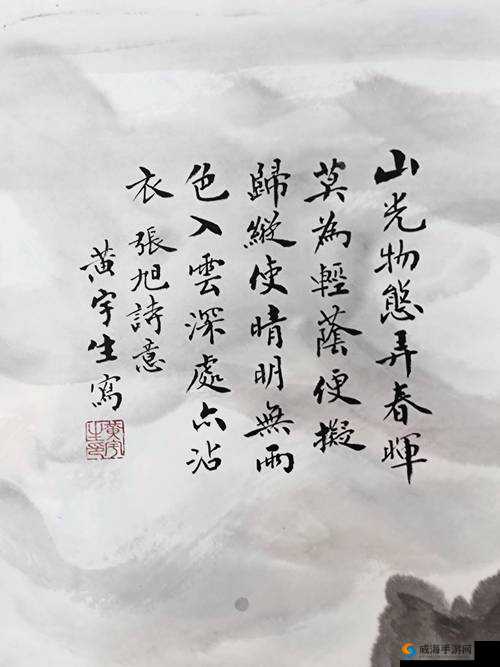 山光物態弄春暉
莫為輕蔭便擬
歸縱使晴明無雨
色入雲深處亦沾
衣 張旭詩意
黃宇生寫
黃宇生印
威海手游网